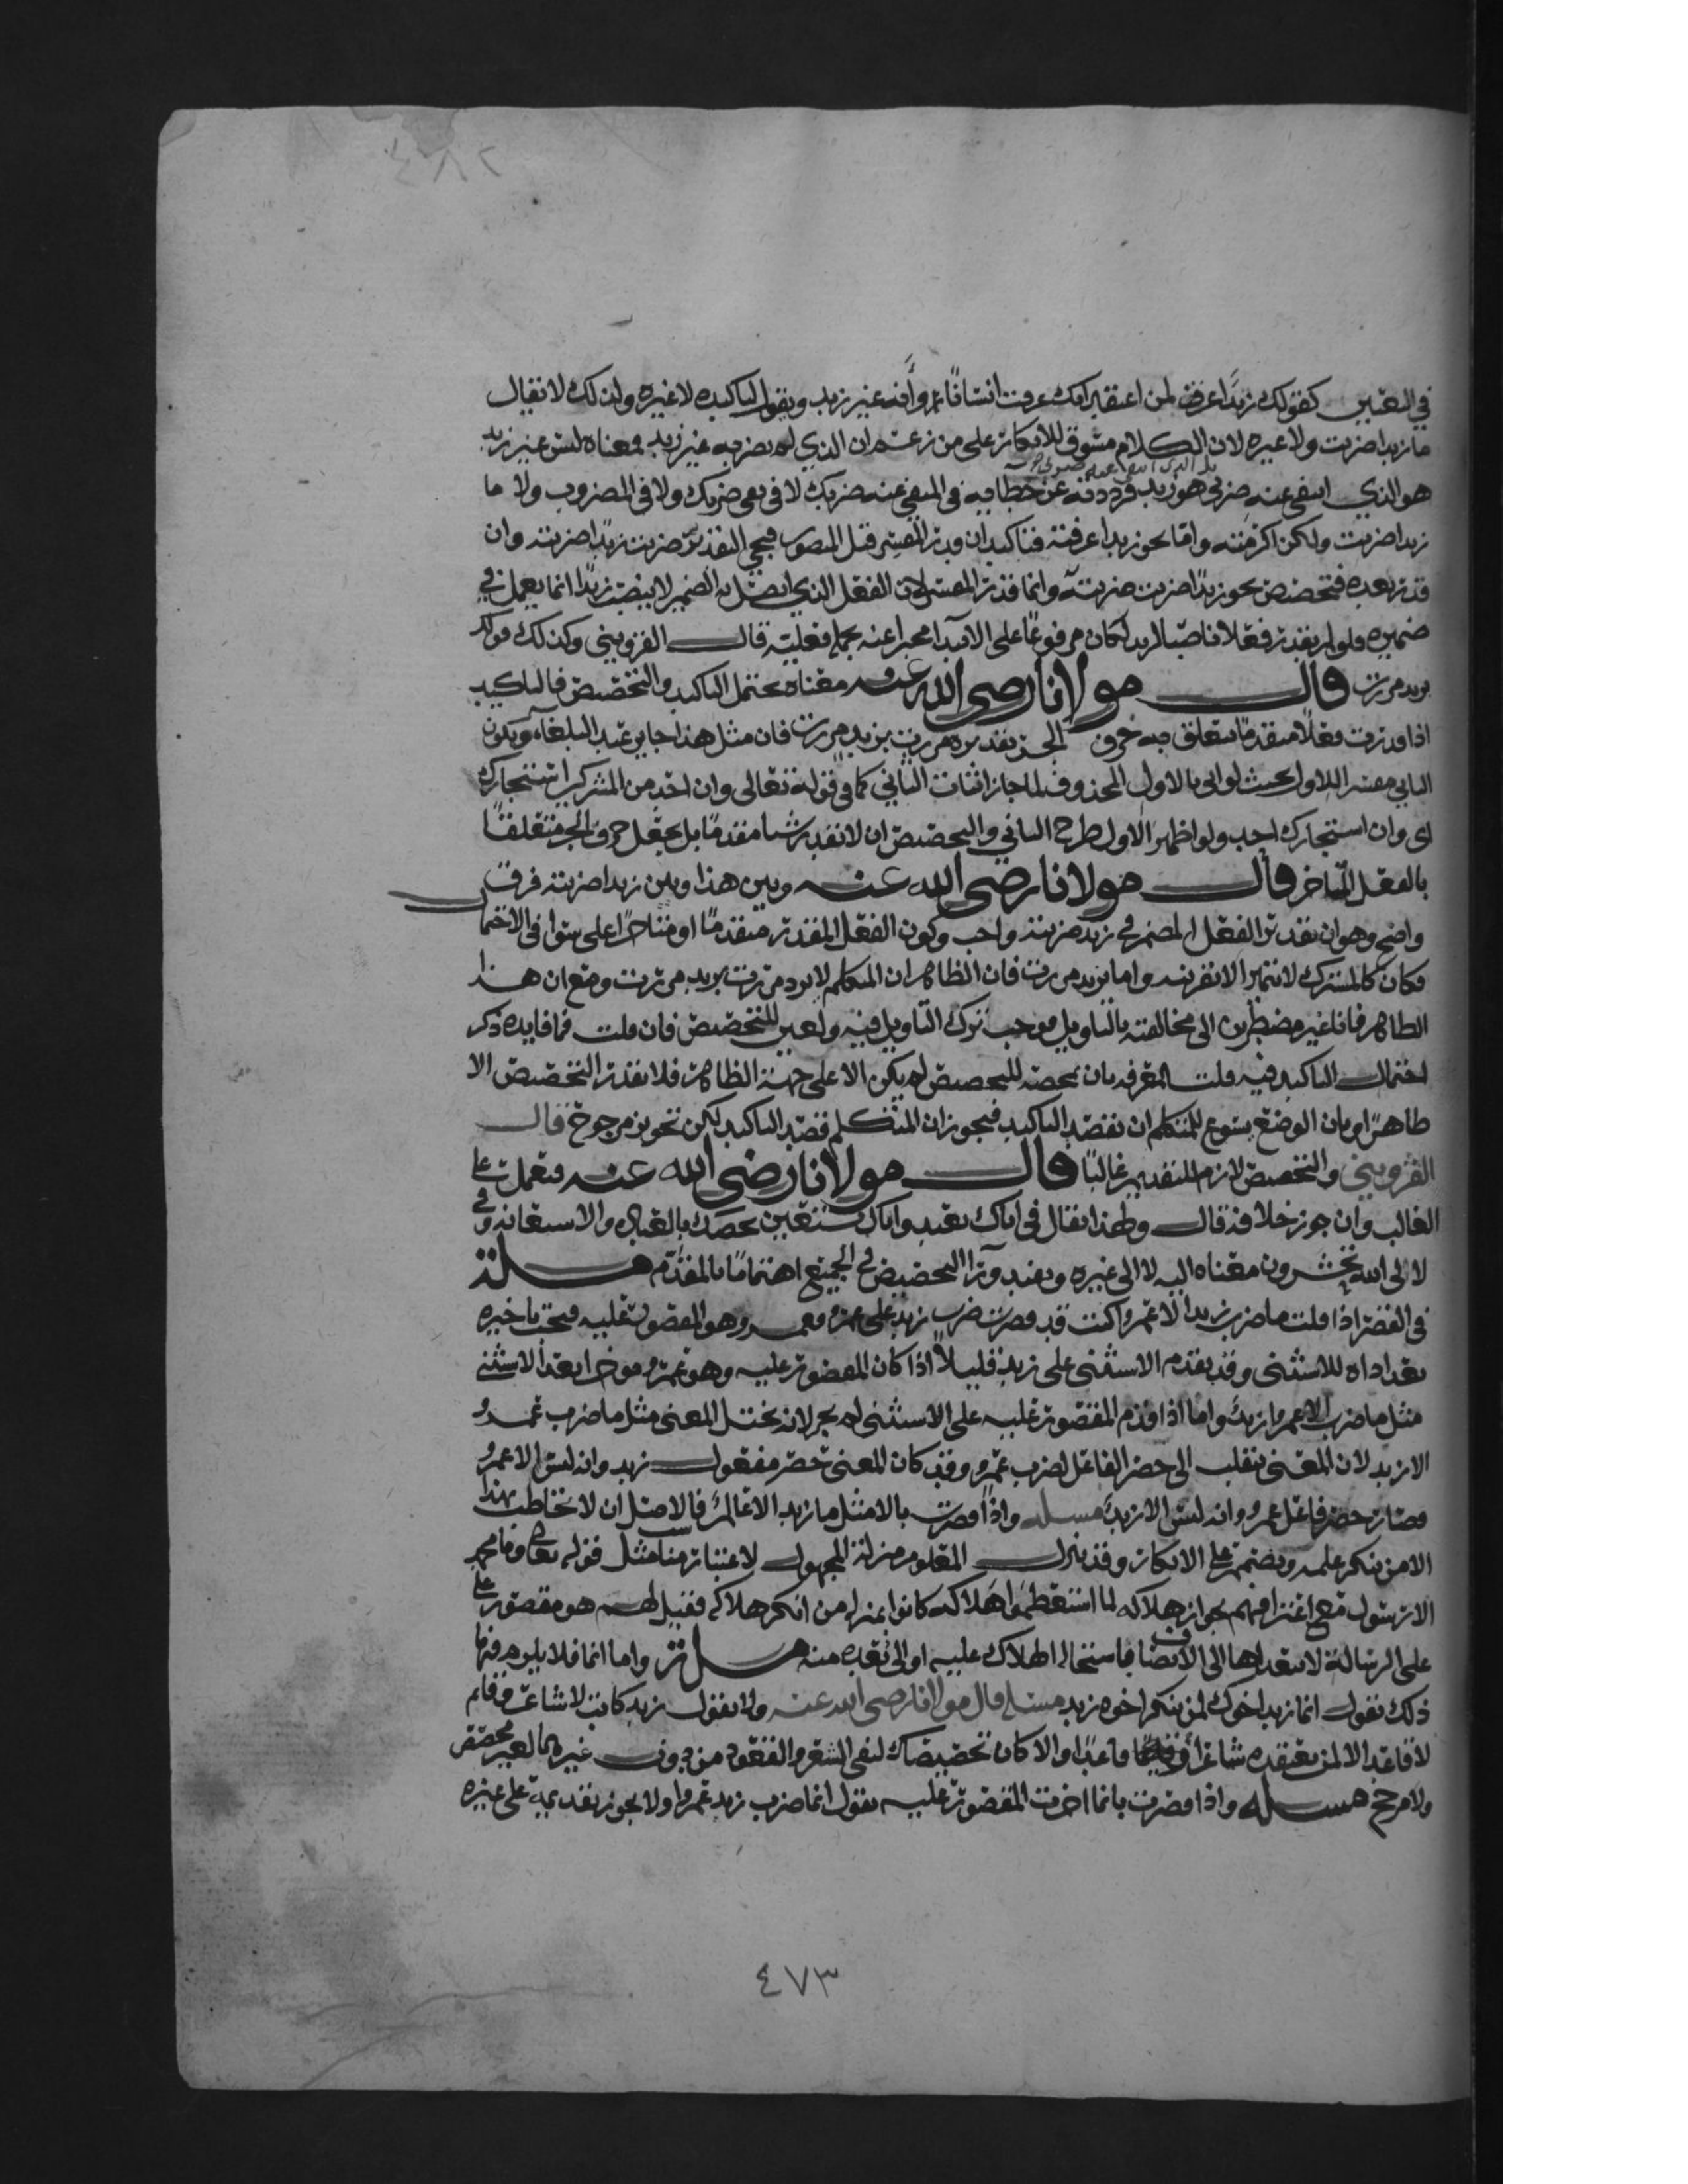 ٢٨٤
في التعيين كقولك زيدا عرفت لمن اعتقد انك عرفت انسانا ما وأنه غير زيد وتقول لتاكيده لا غيره ولذلك لا يقال
ما زيدا ضربت ولا غيره لان الكلام مسوق للانكار على من زعم ان الذي لم تضربه غير زيد ومعناه ليس غير زيد
هو الذي انتفى عنه ضربي هو زيد فرددته عن خطابه في المنفي عنه ضربك لا في نفي ضربك ولا في المضروب ولا ما
زيدا ضربت ولكن اكرمته واما نحو زيدا عرفته فتاكيد ان قدر المفسر قبل المنصوب فيجي التقدير ضربت زيدا ضربته وان
قدر بعده فتخصيص نحو زيدا ضربت ضربته وانما قدر المفسر لان الفعل الذي اتصل به الضمير لا ينصب زيدا انما يعمل في
ضميره فلو لم يقدر فعلا ناصبا لزيد لكان مرفوعا على الابتدا مخبرا عنه بجملة فعلية قال القزويني وكذلك قولك
بزيد مررت قال مولانا رضي الله عنه معناه محتمل التاكيد والتخصيص فالتاكيد
اذا قدرت فعلا متقدما يتعلق به حرف الجر تقديره مررت بزيد مررت فان مثل هذا جايز عند البلغاء ويكون
الثاني مفسرا للاول بحيث لو اتى بالاول المحذوف لما جاز اثبات الثاني كما في قوله تعالى وان احد من المشركين استجارك
اي وان استجارك احد ولو اظهر الاول طرح الثاني والتخصيص ان لا تقدر شيا مقدما بل تجعل حرف الجر متعلقا
بالفعل المتاخر قال مولانا رضي الله عنه وبين هذا وبين زيدا ضربته فرق
واضح وهو ان تقدير الفعل المضمر في زيدا ضربته واجب وكون الفعل المقدر متقدما او متاخرا على سوا في الاحتمال
فكان كالمشترك لا يتميز الا بقرينه واما بزيد مررت فان الظاهر ان المتكلم لا يرد مررت بزيد مررت ومع ان هذا
الظاهر فانا غير مضطرين الى مخالفته بالتاويل فوجب ترك التاويل فيه وتعين للتخصيص فان قلت فما فايده ذكر
احتمال التاكيد فيه قلت المعرفه بان محضه للتخصيص لم يكن الا على جهة الظاهر فلا تقدر التخصيص الا
ظاهرا وبان الوضع يسوغ للمتكلم ان يقصد التاكيد فيجوز ان المتكلم قصد التاكيد لكن تجويز مرجوح قال
القزويني والتخصيص لازم للتقديم غالبا قال مولانا رضي الله عنه فتعمل على
الغالب وان جوز خلافه قال ولهذا يقال في اياك نعبد واياك نستعين نخصك بالعباده والاستعانه وفي
لالى الله تحشرون معناه اليه لا الى غيره ويفيد ورا التخصيص في الجميع اهتماما بالمقدم مسلة
في القصر اذا قلت ما ضرب زيد الا عمرا كنت قد قصرت ضرب زيد على عمرو فعمرو هو المقصور عليه فيجب تاخيره
بعد اداه للاستثنى وقد يقدم الاستثنى على زيد قليلا اذا كان المقصور عليه وهو عمرو موخرا بعد الاستثنى
مثل ما ضرب الا عمرا زيد واما اذا قدم المقصور عليه على الاستثنى لم يجز لانه يختل المعنى مثل ما ضرب عمرو
الا زيد لان المعنى ينقلب الى حصر الفاعل لضرب عمرو وقد كان المعنى حصر مفعول زيد وانه ليس الا عمرو
فصار حصر فاعل عمرو وانه ليس الا زيد مسله واذا قصرت بالا مثل ما زيد الا عالم فالاصل ان لا تخاطب بهذا
الا من ينكر علمه ويصمم على الانكار وقد ينزل المعلوم منزلة المجهول لاعتبار مناسب مثل قوله تعالى وما محمد
الا رسول مع اعترافهم بجواز هلاكه لما استعظموا هلاكه كانوا بمنزله من انكر هلاكه فقيل لهم هو مقصور على
على الرسالة لا يتعداها الى الاتصاف باستحاله الهلاك عليه او الى بعده منه مسلة واما انما فلا يلزم فيها
ذلك تقول انما زيد اخوك لمن ينكر اخوه زيد مسله قال مولانا رضي الله عنه ولا تقول زيد كاتب لا شاعر وقايم
لا قاعد الا لمن يعتقده شاعرا وقاعدا والا كان تخصيصك لنفي الشعر والقعود من دون غيرهما لغير مخصص
ولا مرجح مسله واذا قصرت بانما اخرت المقصور عليه تقول انما ضرب زيد عمرا ولا يجوز تقديمه على غيره
٤٧٣